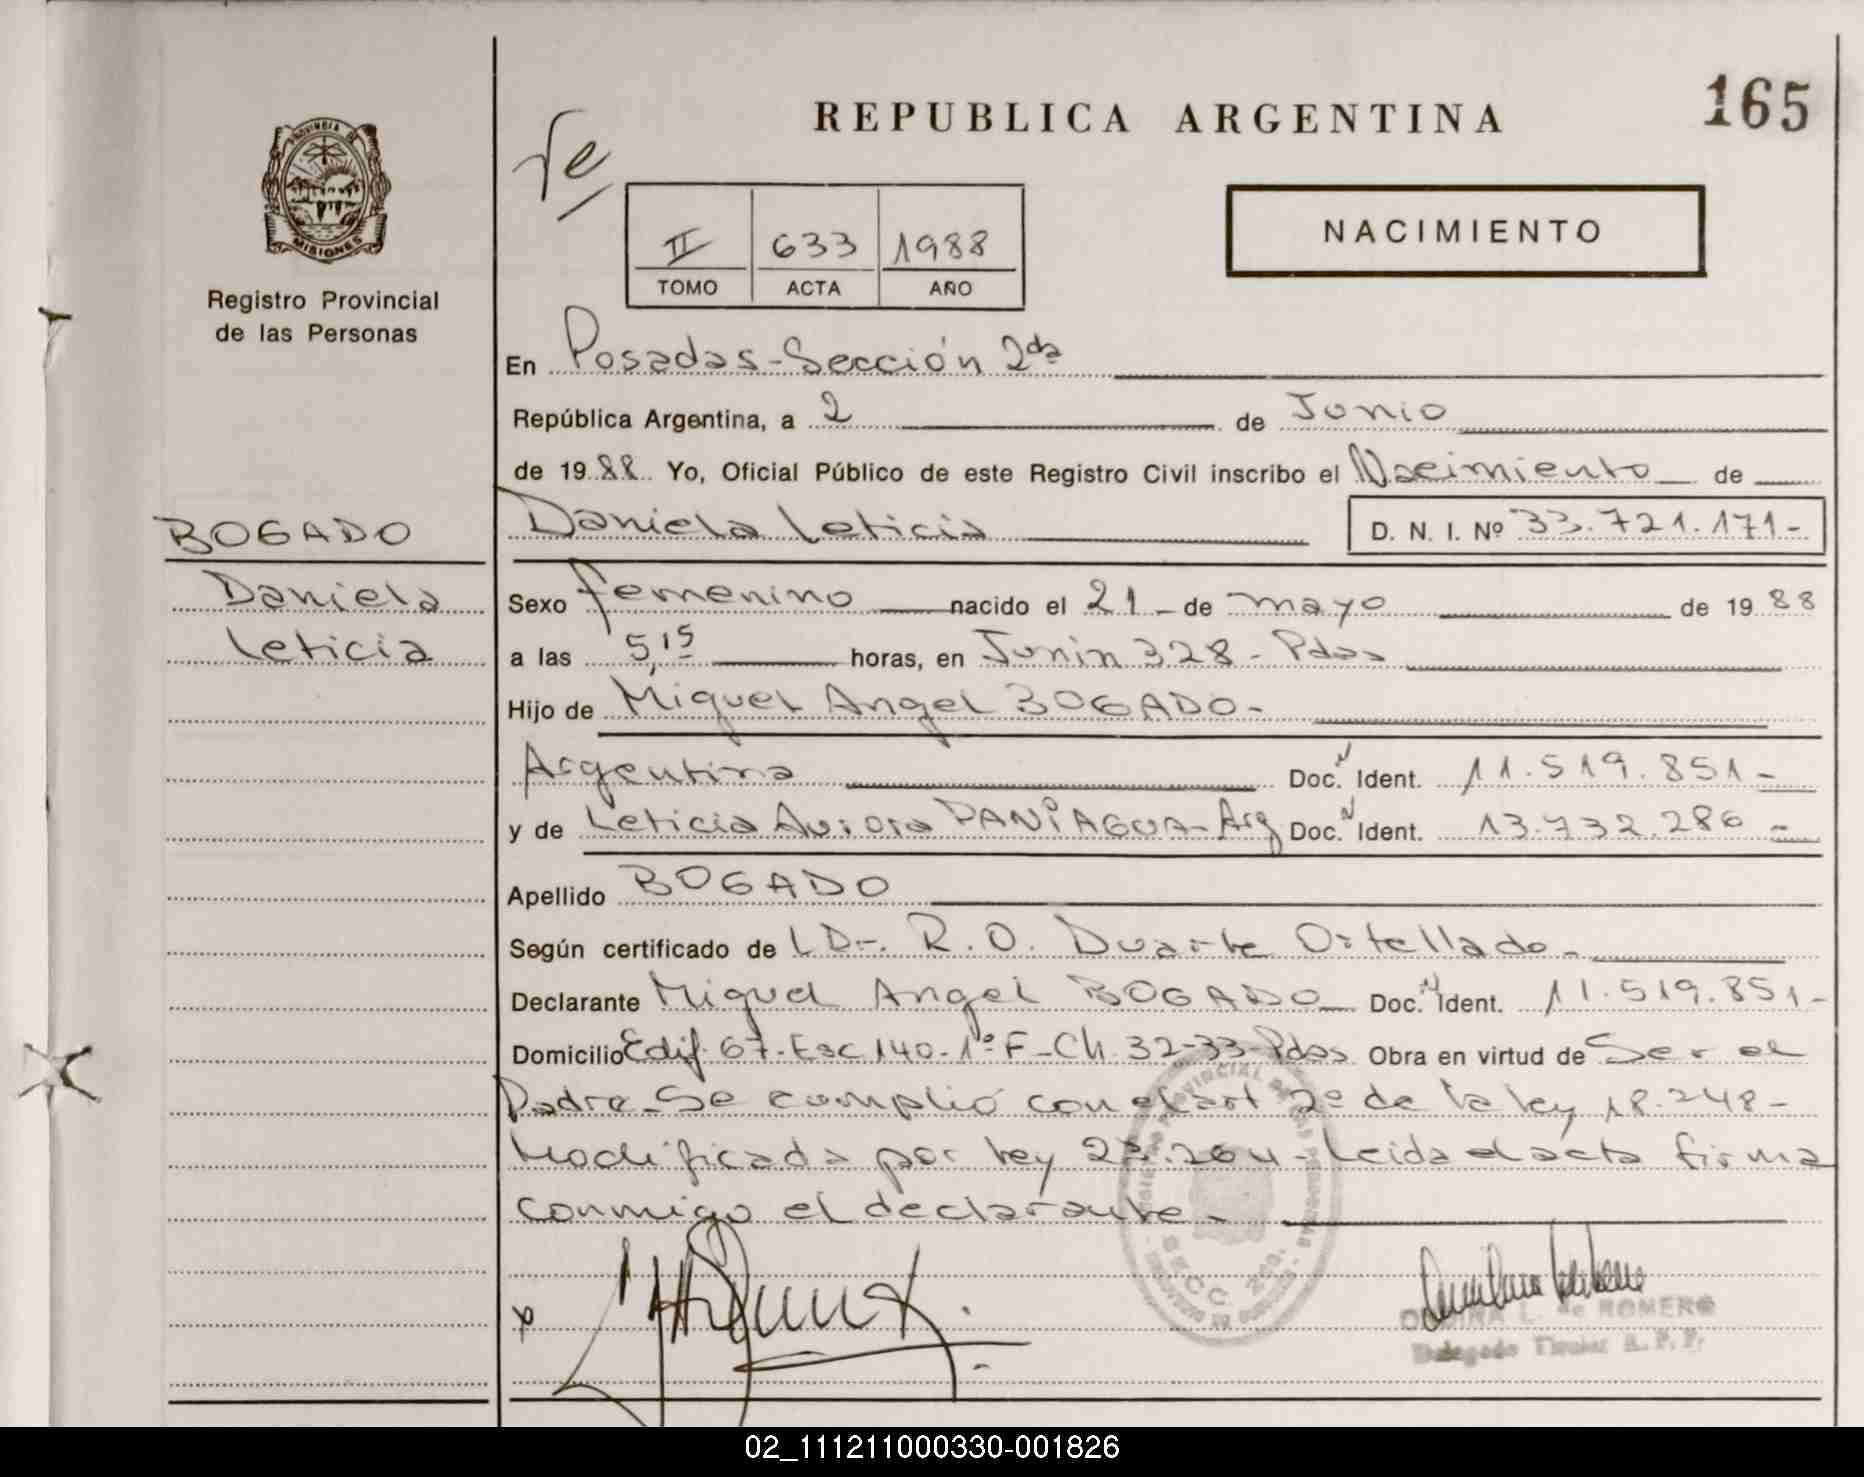 165
REPUBLICA ARGENTINA
NACIMIENTO
II 633 1988
TOMO ACTA AÑO
PROVINCIA DE
MISIONES
Registro Provincial
de las Personas
BOGADO
Daniela
Leticia
En Posadas-Sección 2da
República Argentina, a 2 de Junio
de 1988 Yo, Oficial Público de este Registro Civil inscribo el Nacimiento de
Daniela Leticia D. N. I. Nº 33.721.171-
Sexo femenino nacido el 21 - de mayo de 1988
a las 5,15 horas, en Junin 328 - Pdas
Hijo de Miguel Angel BOGADO-
Argentina Doc. Ident. 11.519.851-
y de Leticia Aurora PANIAGUA-Arg Doc. Ident. 13.732.286-
Apellido BOGADO
Según certificado de LDr. R.O. Duarte Ortellado-
Declarante Miguel Angel BOGADO Doc. Ident. 11.519.851-
Domicilio Edif. 67-Esc 140-1º F-Ch 32-33 Pdas Obra en virtud de Ser el
Padre-Se cumplió con el art 2º de la ley 18.248-
Modificada por ley 23.264-Leida el acta firma
conmigo el declarante-
SECC. 2da.
L. de ROMERO
Delegado Titular R.P.P.
02_111211000330-001826